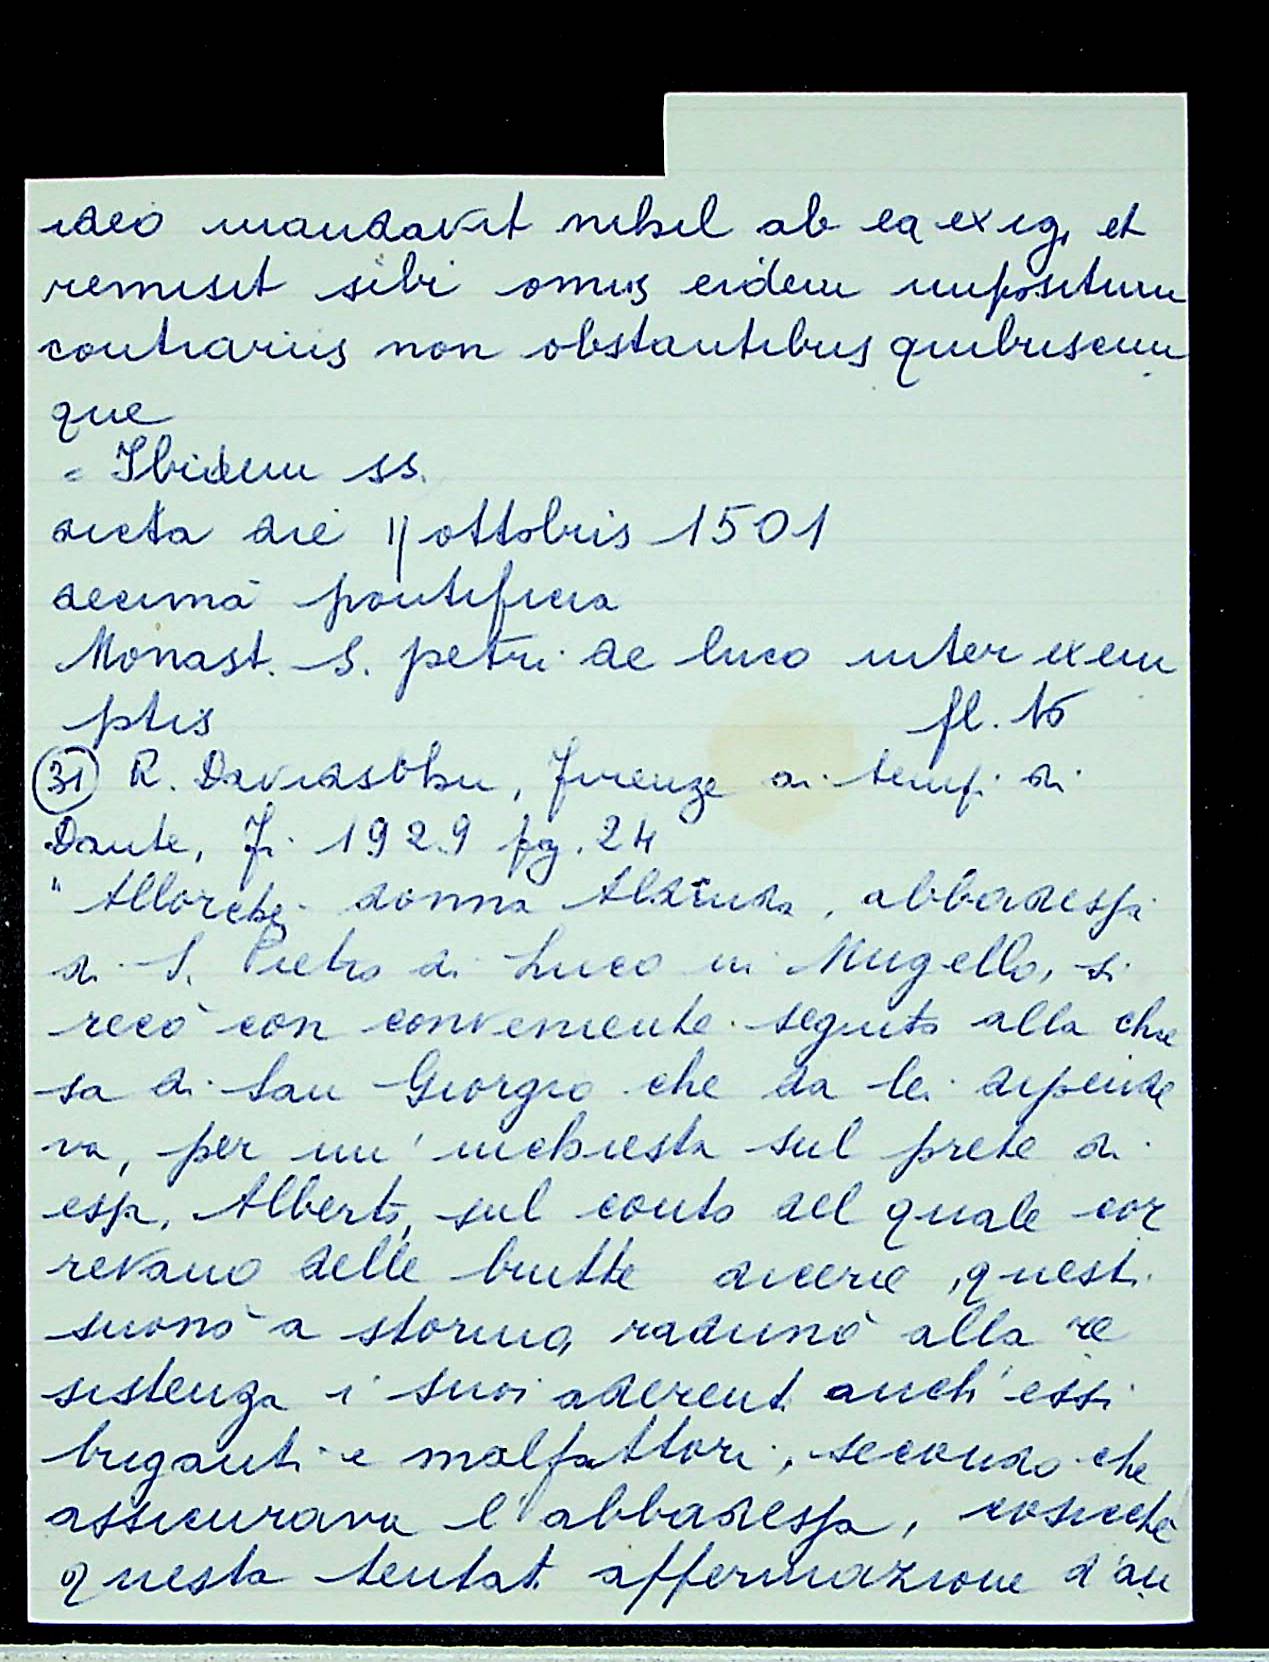 ideo mandavit nihil ab ea exigi et
remisit sibi omus eidem impositum
contrariis non obstantibus quibuscum
que
= Ibidem ss.
dicta die 11 ottobris 1501
decima pontificia
Monast. S. petri de luco inter exem
ptis fl. 16
(31) R. Davidsohn, Firenze ai tempi di
Dante, Fi. 1929 pg. 24
"Allorché donna Aldinda, abbadessa
di S. Pietro di Luco in Mugello, si
recò con conveniente seguito alla chie
sa di San Giorgio che da lei dipende
va, per un'inchiesta sul prete di
essa, Alberto, sul conto del quale cor
revano delle brutte dicerie, questi
suonò a stormo, radunò alla re
sistenza i suoi aderenti anch'essi
briganti e malfattori, secondo che
assicurava l'abbadessa, cosicché
questa tentat. affermazione d'au